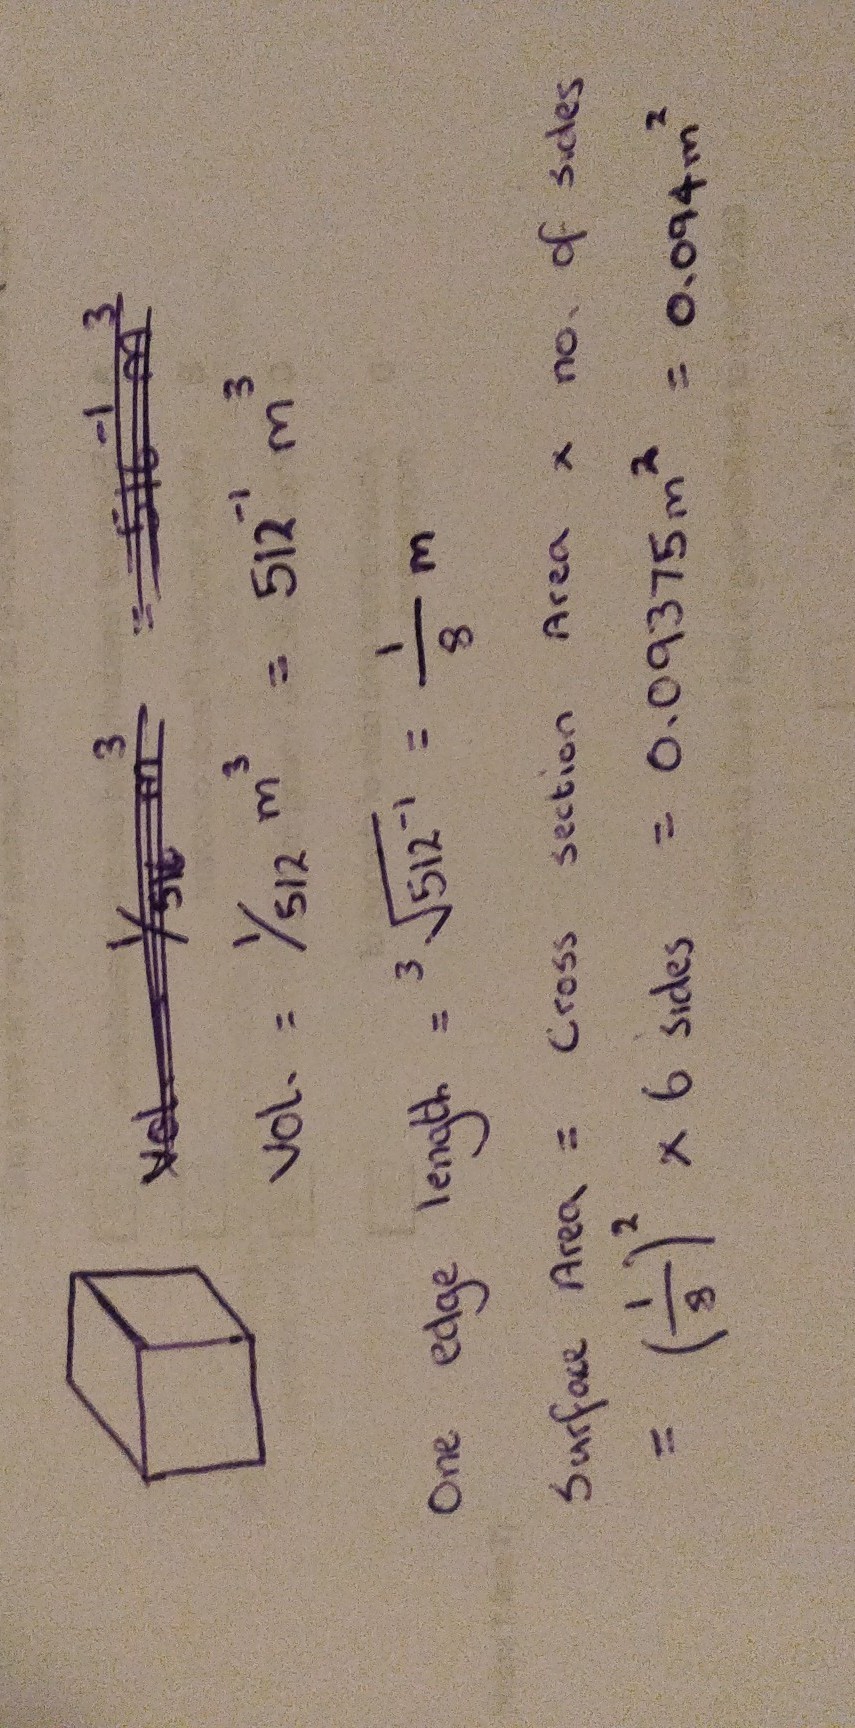 Vol 1/516 m³ = 516⁻¹ m³
Vol. = 1/512 m³ = 512⁻¹ m³
One edge length = ³√512⁻¹ = 1/8 m
Surface Area = Cross section Area x no. of sides
= (1/8)² x 6 sides = 0.09375m² = 0.094m²